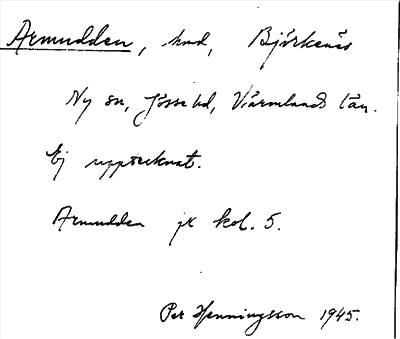 Armudden, hmd, Björkenäs
Ny sn, Jösse hd, Värmlands län.
Ej upptecknat.
Armudden jr kol. 5.
Per Henningsson 1945.